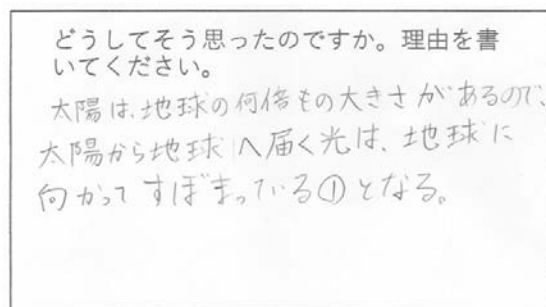 どうしてそう思ったのですか。理由を書
いてください。
太陽は、地球の何倍もの大きさがあるので、
太陽から地球へ届く光は、地球に
向かってすぼまっている①となる。